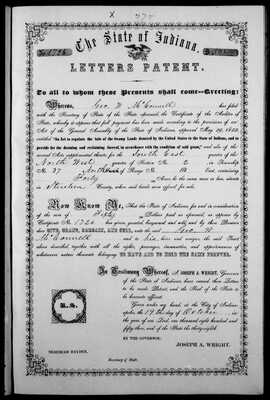 X
The State of Indiana.
LETTERS PATENT.
To all to whom these Presents shall come—Greeting:
Whereas, Geo. W. McConnell has filed
with the Secretary of State of the State aforesaid the Certificate of the Auditor of
State, whereby it appears that full payment has been made according to the provisions of an
Act of the General Assembly of the State of Indiana approved May 29, 1852,
entitled "An Act to regulate the sale of the Swamp Lands donated by the United States to the State of Indiana, and to
provide for the draining and reclaiming thereof, in accordance with the condition of said grant," and also of the
several Acts supplemental thereto for the South East quarter of
North West quarter of Section No. 2 in Township
No. 37 North of Range No. containing
Forty Acres be the same more or less, situate
in Steuben County, when said lands were offered for sale.
Now Know Ye, That the State of Indiana for and in consideration
of the sum of Fifty Dollars paid as aforesaid, as appears by
Certificate No. 1720 has given, granted, bargained and sold; and by these Presents
doth GIVE, GRANT, BARGAIN, AND SELL, unto the said Geo. W.
McConnell and to his heirs and assigns the said Tract
above described together with all the rights, privileges, immunities, and appurtenances of
whatsoever nature thereunto belonging TO HAVE AND TO HOLD THE SAME FOREVER.
In Testimony Whereof, I, JOSEPH A. WRIGHT, Governor
of the State of Indiana have caused these Letters
to be made Patent, and the Seal of the State to
be hereunto affixed.
Given under my hand, at the City of Indianapolis,
the 19th day of October in
the year of our Lord, one thousand eight hundred and
fifty and of the State the thirty-eighth
BY THE GOVERNOR:
JOSEPH A. WRIGHT.
NEHEMIAH HAYDEN,
Secretary of State.